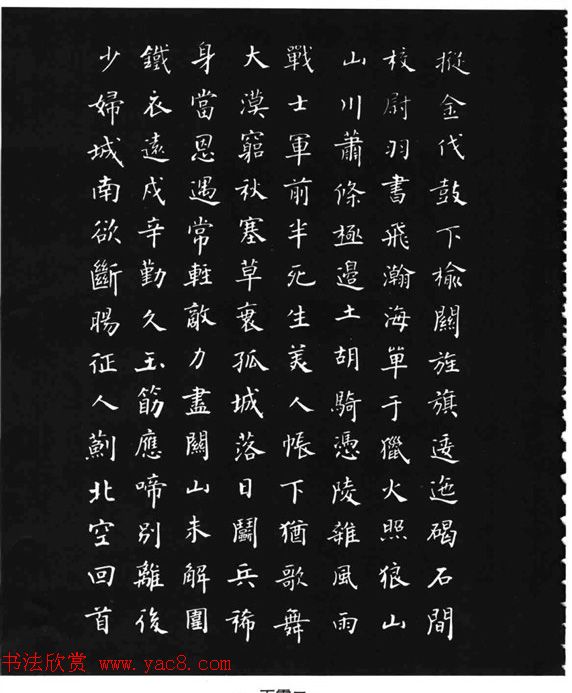 摐金伐鼓下榆關旌旗逶迤碣石間
校尉羽書飛瀚海單于獵火照狼山
山川蕭條極邊土胡騎憑陵雜風雨
戰士軍前半死生美人帳下猶歌舞
大漠窮秋塞草衰孤城落日鬬兵稀
身當恩遇常輕敵力盡關山未解圍
鐵衣遠戍辛勤久玉筯應啼別離後
少婦城南欲斷腸征人薊北空回首
书法欣赏 www.yac8.com